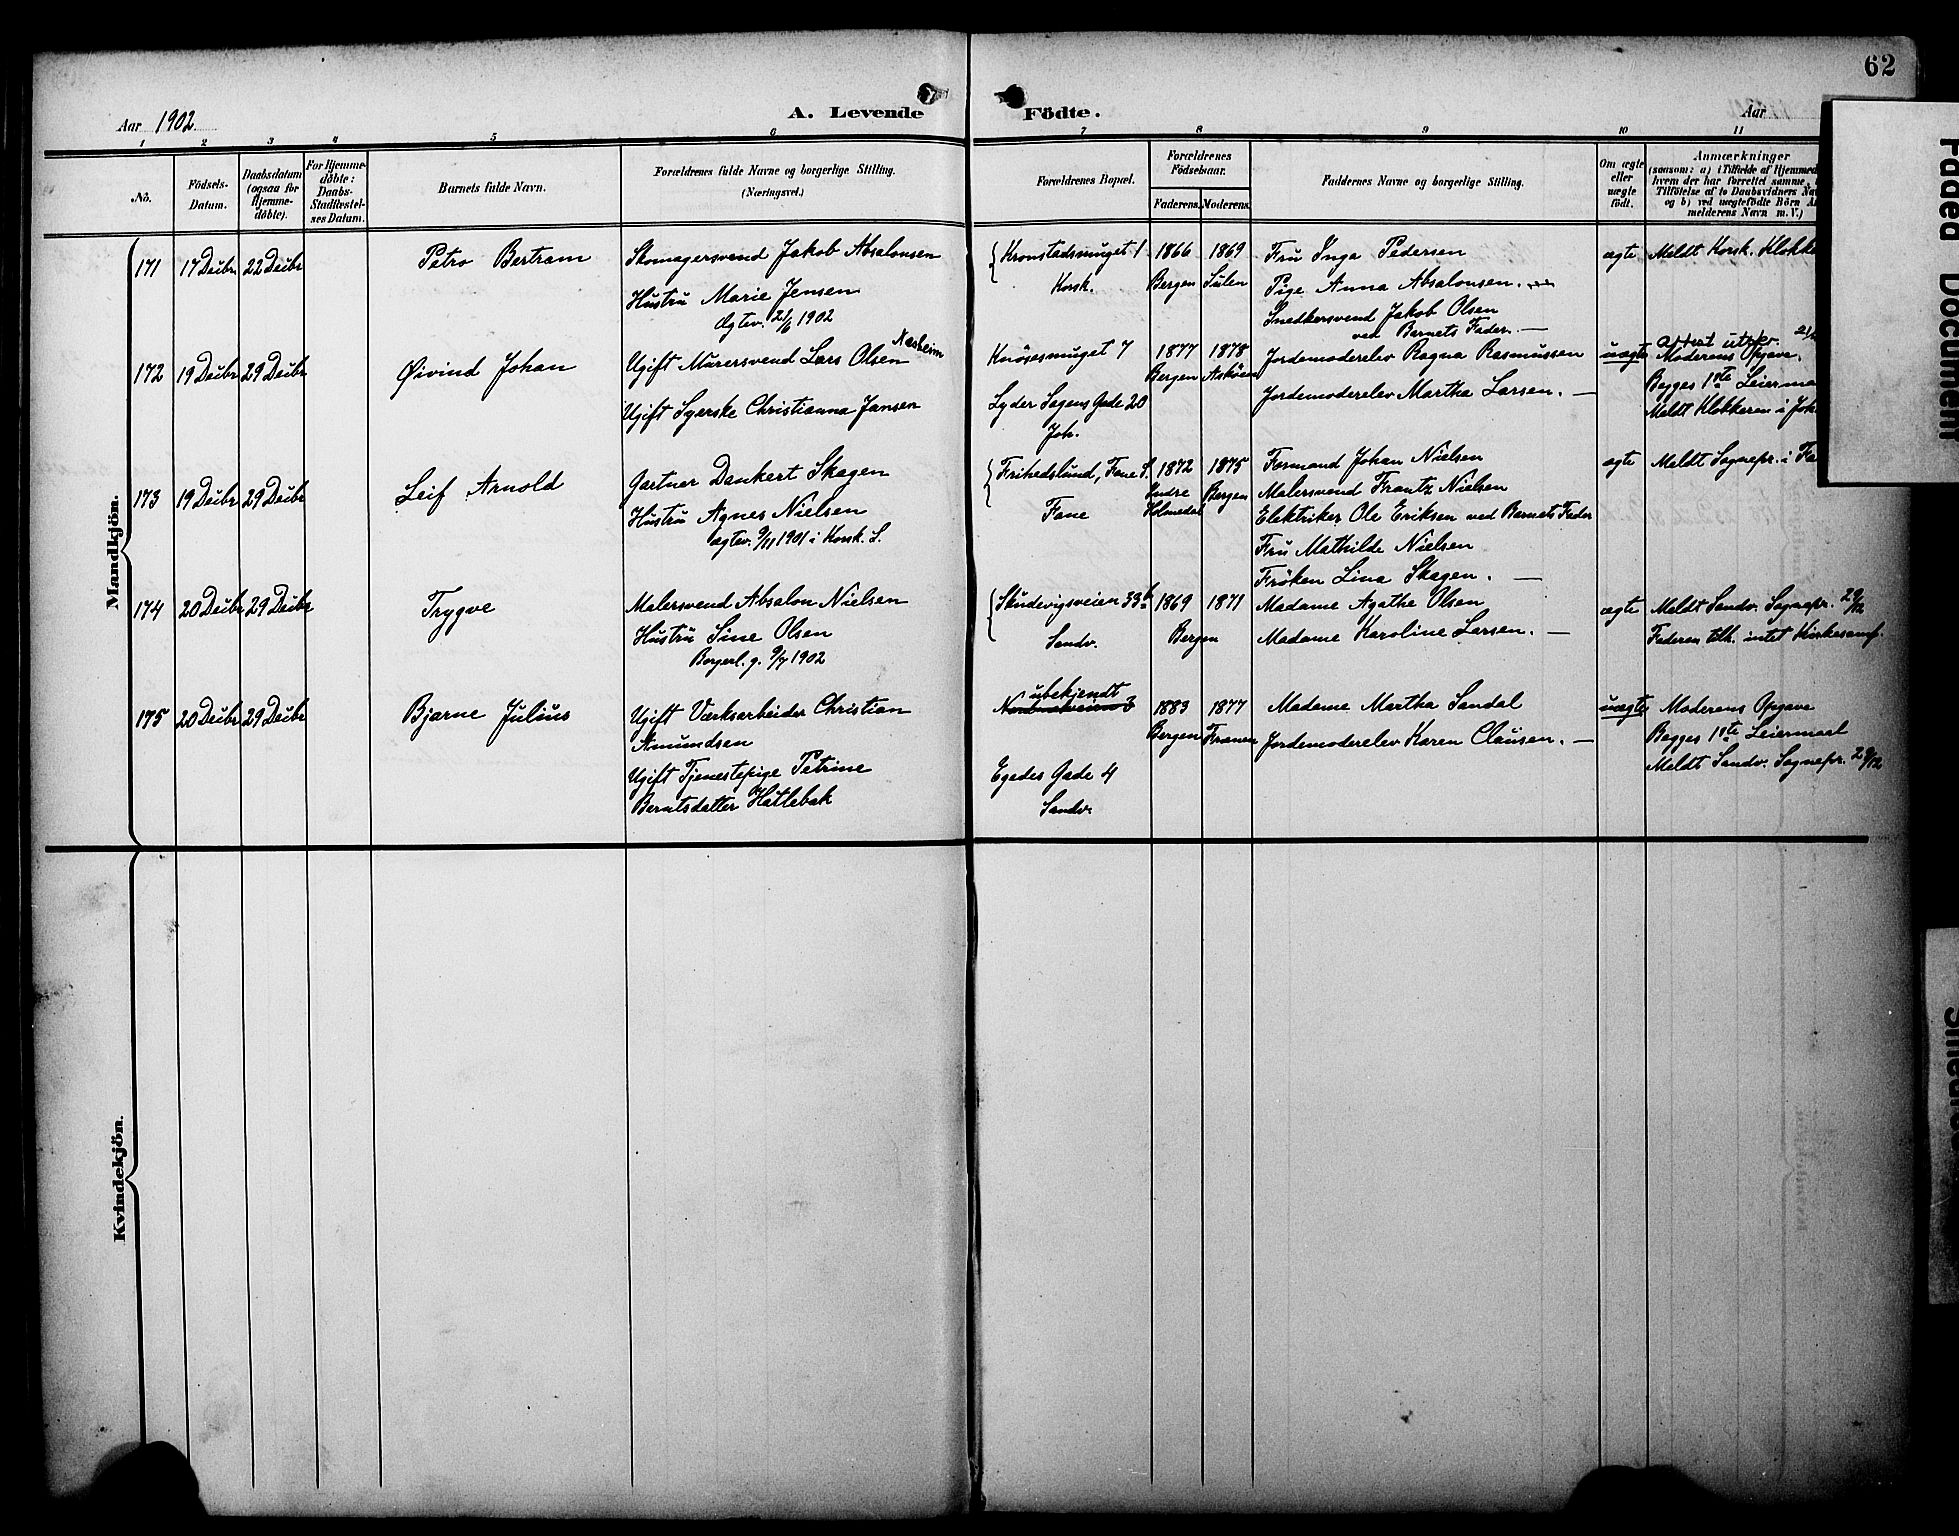 62
Aar 1902
A. Levende Födte.
Aar
1 2 3 4 5 6 7 8 9 10 11
No.
Födsels-Datum.
Daabsdatum (ogsaa for Hjemmedöbte).
For Hjemmedöbte: Daabs-Stadfæstelses Datum.
Barnets fulde Navn.
Forældrenes fulde Navne og borgerlige Stilling. (Næringsvei.)
Forældrenes Bopæl.
Forældrenes Födselsaar.
Faderens. Moderens.
Faddernes Navne og borgerlige Stilling.
Om ægte eller uægte födt.
Anmærkninger
(saasom: a) i Tilfælde af Hjemmed
hvem der har forrettet samme,
Tilföielse af to Daabsvidners Na
og b) ved uægtefödte Börn A
melderens Navn m. V.)
Mandkjön.
171 17 Deibr 22 Deibr Petro Bertram
Skomagersvend Jakob Absalonsen
Hustru Marie Jensen
Ægtev. 21/6 1902
Kronstadsmuget 1
Korsk.
1866 Bergen
1869 Sulen
Fru Inga Pedersen
Pige Anna Absalonsen.
Snedkersvend Jakob Olsen
ved Barnets Fader. —
ægte
Meldt Korsk. Klokke
172 19 Deibr 29 Deibr Øivind Johan
Ugift Murersvend Lars Olsen Næsheim
Ugift Syerske Christianna Jansen
Knösesmuget 7
Lyder Sagens Gade 20
Joh.
1877 Bergen
1878 Askøen
Jordemoderelev Ragna Rasmussen
Jordemoderelev Martha Larsen. —
uægte
attest utskr.
Moderens Opgave.
Begges 1ste Leiermaa
Meldt Klokkeren i Joh
173 19 Deibr 29 Deibr Leif Arnold
Gartner Dankert Skagen
Hustru Agnes Nielsen
Ægtev. 9/11 1901 i Korsk. S.
Frihedslund, Fane S.
Fane
1872 Indre Holmedal
1875 Bergen
Formand Johan Nielsen
Malersvend Frantz Nielsen
Elektriker Ole Eriksen ved Barnets Fader
Fru Mathilde Nielsen
Fröken Lina Skagen. —
ægte
Meldt Sognepr. i Fa
174 20 Deibr 29 Deibr Trygve
Malersvend Absalon Nielsen
Hustru Sine Olsen
Borgerl. g. 9/7 1902
Skudevigsveien 33 b
Sandv.
1869 1871
Bergen
Madame Agathe Olsen
Madame Karoline Larsen. —
ægte
Meldt Sandv. Sognepr. 29/12
Faderen tilh. intet Kirkesamf.
175 20 Deibr 29 Deibr Bjarne Julius
Ugift Værksarbeider Christian
Amundsen
Ugift Tjenestepige Petrine
Berntsdatter Hatlebak
ubekjendt
Egedes Gade 4
Sandv.
1883 Bergen
1877 Kranen
Madame Martha Sandal
Jordemoderelev Karen Clausen. —
uægte
Moderens Opgave
Begges 1ste Leiermaal
Meldt Sandv. Sognepr. 29/12
Kvindekjön.
Faded Document